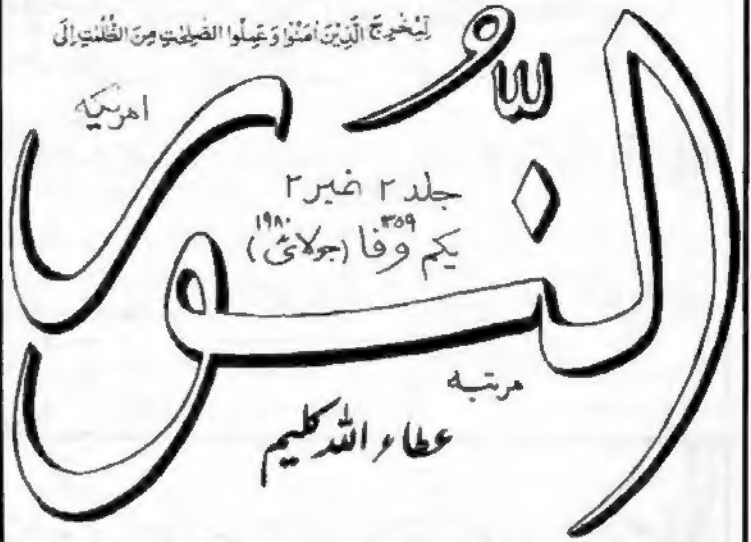 لِيُخْرِجَ الَّذِيْنَ اٰمَنُوْا وَعَمِلُوا الصّٰلِحٰتِ مِنَ الظُّلُمٰتِ اِلَى
النُّور
امریکہ
جلد ۲ نمبر ۲
یکم وفا ۱۳۵۹ (جولائی ۱۹۸۰)
مرتبہ
عطاء اللہ کلیم